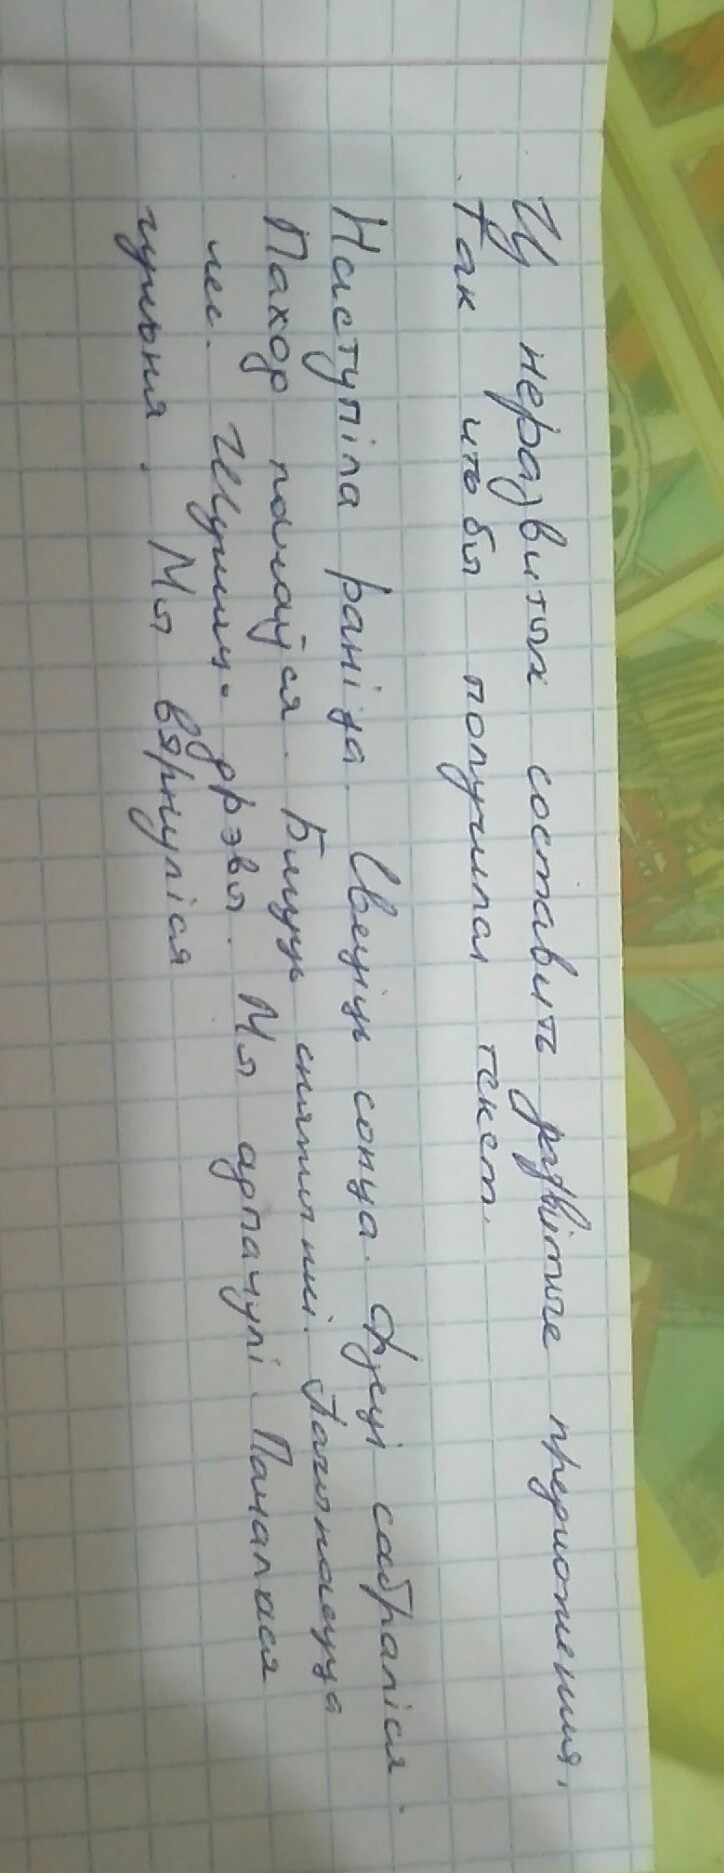 Из неразвитых составить развітые предложения,
так чтобы получился текст.
Наступіла раніца. Свеціць сонца. Дзеці сабраліся.
Паход пачаўся. Бягуць сняжынкі. Пачынаецца
лес. Шумяць дрэвы. Мы адпачулі. Пачалася
гульня. Мы вярнуліся